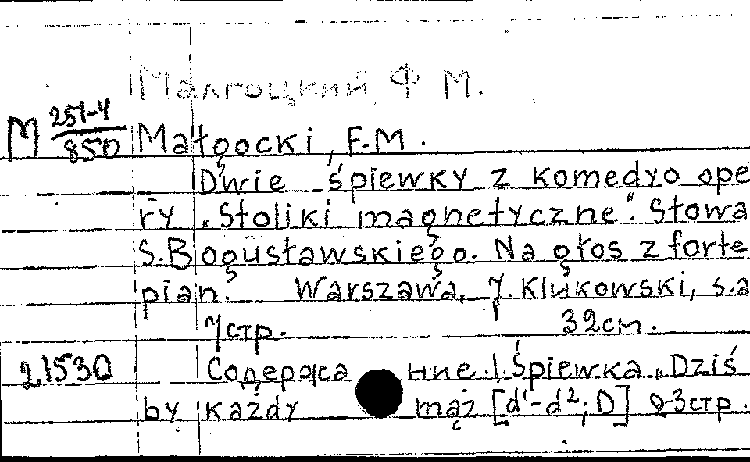 Малгоцкий, Ф М.
M 251-4/850 Małgocki, F.M.
Dwie śpiewky z komedyo ope
ry „Stoliki magnetyczne“. Słowa
S. Bogusławskiego. Na głos z forte
pian. Warszawa, J. Klukowski, s.a
7 стр. 32 см.
21530 Содержание. I. Śpiewka „Dziś
by każdy mąż [d¹-d²; D] 2-3 стр.